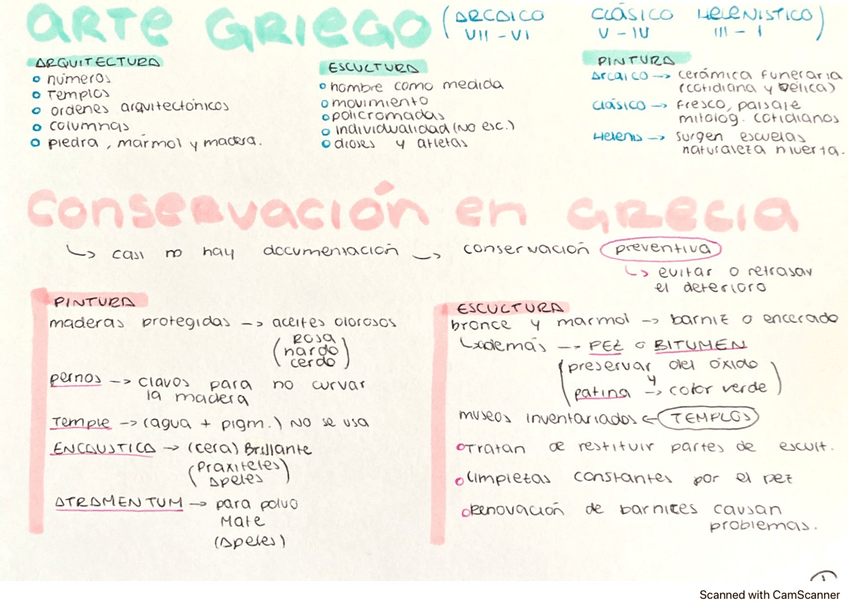 ARTE GRIEGO (ARCAICO CLÁSICO HELENISTICO)
VII - VI V - IV III - I
ARQUITECTURA
números
Templos
ordenes arquitectónicos
columnas
piedra, mármol y madera.
ESCULTURA
hombre como medida
movimiento
policromadas
individualidad (No esc.)
dioses y atletas
PINTURA
Arcaico → cerámica funeraria
(cotidiana y Bélica)
Clásico → Fresco, paisaje
mitolog. cotidianos
Helenis → surgen escuelas
naturaleza muerta.
Conservación en GRECIA
↳ casi no hay documentación → conservación preventiva
↳ evitar o retrasar
el deterioro
PINTURA
maderas protegidas → aceites olorosos
(Rosa
nardo
cerdo)
pernos → clavos para no curvar
la madera
Temple → (agua + pigm.) NO se usa
ENCAUSTICA → (cera) Brillante
(Praxiteles
Apeles)
ATRAMENTUM → para polvo
Mate
(Apeles)
ESCULTURA
bronce y marmol → barniz o encerado
↳además → PEZ o BITUMEN
(preservar del óxido
y
patina → color verde)
museos inventariados ← TEMPLOS
Tratan de restituir partes de escult.
limpiezas constantes por el pez
Renovación de barnices causan
problemas.
1
Scanned with CamScanner